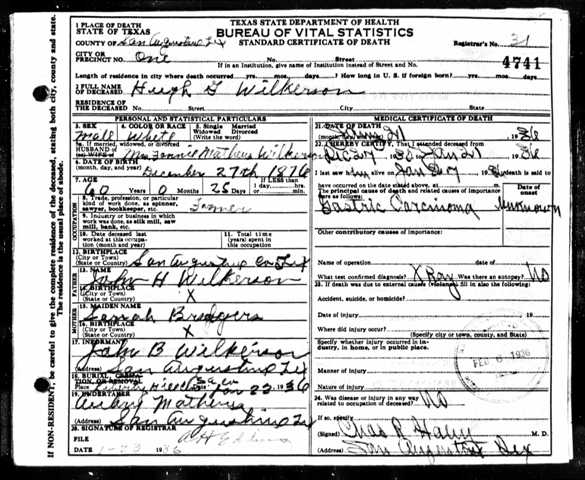 TEXAS STATE DEPARTMENT OF HEALTH
BUREAU OF VITAL STATISTICS
STANDARD CERTIFICATE OF DEATH
1 PLACE OF DEATH
STATE OF TEXAS
COUNTY OF San Augustine Tex
Registrar's No. 31
CITY OR PRECINCT NO. One
4741
If in an Institution, give name of Institution instead of Street and No.
Length of residence in city where death occurred yrs. mos. days. ? How long in U. S. if foreign born? yrs. mos. days
2 FULL NAME OF DECEASED Hugh Wilkerson
RESIDENCE OF THE DECEASED No. Street City State
PERSONAL AND STATISTICAL PARTICULARS
3. SEX Male
4. COLOR OR RACE White
5. Single Married Widowed Divorced (Write the word)
5a. If married, widowed, or divorced HUSBAND OF (or) WIFE OF Mrs Fannie Mathews Wilkerson
6. DATE OF BIRTH (month, day, and year) December 27th 1876
7. AGE 60 Years 0 Months 25 Days If LESS than 1 day, hrs. min.
8. Trade, profession, or particular kind of work done, as spinner, sawyer, bookkeeper, etc. Farmer
9. Industry or business in which work was done, as silk mill, saw mill, bank, etc.
10. Date deceased last worked at this occupation (month and year)
11. Total time (years) spent in this occupation
12. BIRTHPLACE (City or Town) (State or County) San Augustine Co Tex
13. NAME John H Wilkerson
14. BIRTHPLACE (City or Town) (State or Country) X
15. MAIDEN NAME Sarah Bridgers
16. BIRTHPLACE (City or Town) (State or Country) X
17. INFORMANT John B Wilkerson
(Address) San Augustine Tex
18. BURIAL, CREMATION, OR REMOVAL
Place Date Jan 22 1936
19. UNDERTAKER Mathews
(Address) San Augustine Tex
20. SIGNATURE OF REGISTRAR
FILE DATE 1-23 1936
MEDICAL CERTIFICATE OF DEATH
21. DATE OF DEATH (month, day, and year) 21 1936
22. I HEREBY CERTIFY, That I attended deceased from
Dec 27 to Jan 21 1936
I last saw him alive on Jan 1936 death is said to
have occurred on the date stated above, at m.
The principal cause of death and related causes of importance were as follows:
Date of onset
Gastric Carcinoma Unknown
Other contributory causes of importance:
Name of operation
What test confirmed diagnosis? X Ray Was there an autopsy? No
23. If death was due to external causes (violence) fill in also the following:
Accident, suicide, or homicide?
Date of injury 19
Where did injury occur?
(Specify city or town, county, and State)
Specify whether injury occurred in industry, in home, or in public place.
FEB 6 1936
Manner of injury
Nature of injury
24. Was disease or injury in any way related to occupation of deceased? No
If so, specify
(Signed) Chas R Haley M. D.
(Address) San Augustine Tex
OCCUPATION
FATHER
MOTHER
IF NON-RESIDENT, be careful to give the complete residence of the deceased, stating both city, county and state.
The residence is the usual place of abode.